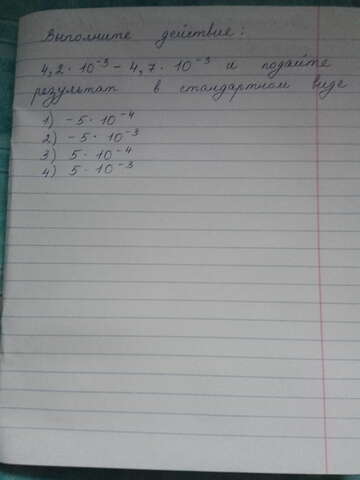 Выполните действие:
4,2 · 10⁻³ – 4,7 · 10⁻³ и подайте
результат в стандартном виде
1) – 5 · 10⁻⁴
2) – 5 · 10⁻³
3) 5 · 10⁻⁴
4) 5 · 10⁻³